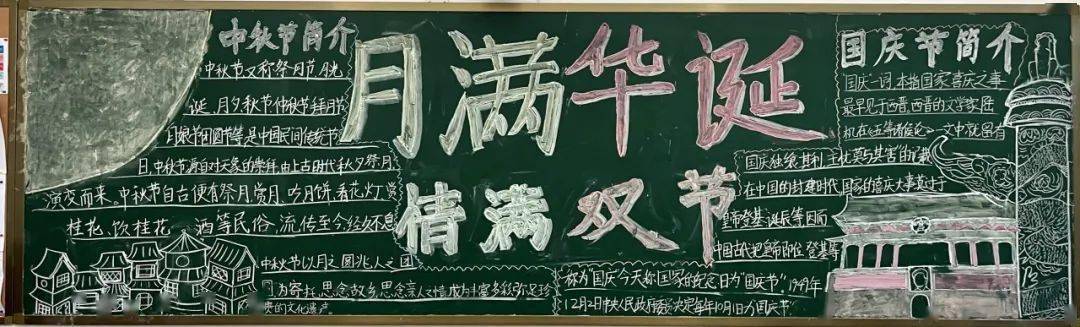 中秋节简介
中秋节又称祭月节、月光
诞、月夕、秋节、仲秋节、拜月节
月娘节、团圆节等是中国民间传统节
日,中秋节源自对天象的崇拜,由上古时代秋夕祭月
演变而来。中秋节自古便有祭月、赏月、吃月饼、看花灯、赏
桂花、饮桂花酒等民俗,流传至今,经久不息
中秋节以月之圆兆人之团
为寄托,思念故乡,思念亲人之情,成为丰富多彩、弥足珍
贵的文化遗产。
月满华诞
情满双节
国庆节简介
国庆一词,本指国家喜庆之事
最早见于西晋,西晋的文学家陆
机在《五等诸侯论》一文中就曾有
国庆独飨其利,主忧莫与其害的记载
在中国的封建时代,国家的喜庆大事莫过于
皇帝登基、诞辰等,因而
中国古代把皇帝即位、登基等
称为"国庆"今天称国家的纪念日为"国庆节"1949年
12月2日中央人民政府委决定每年10月1日为国庆节"